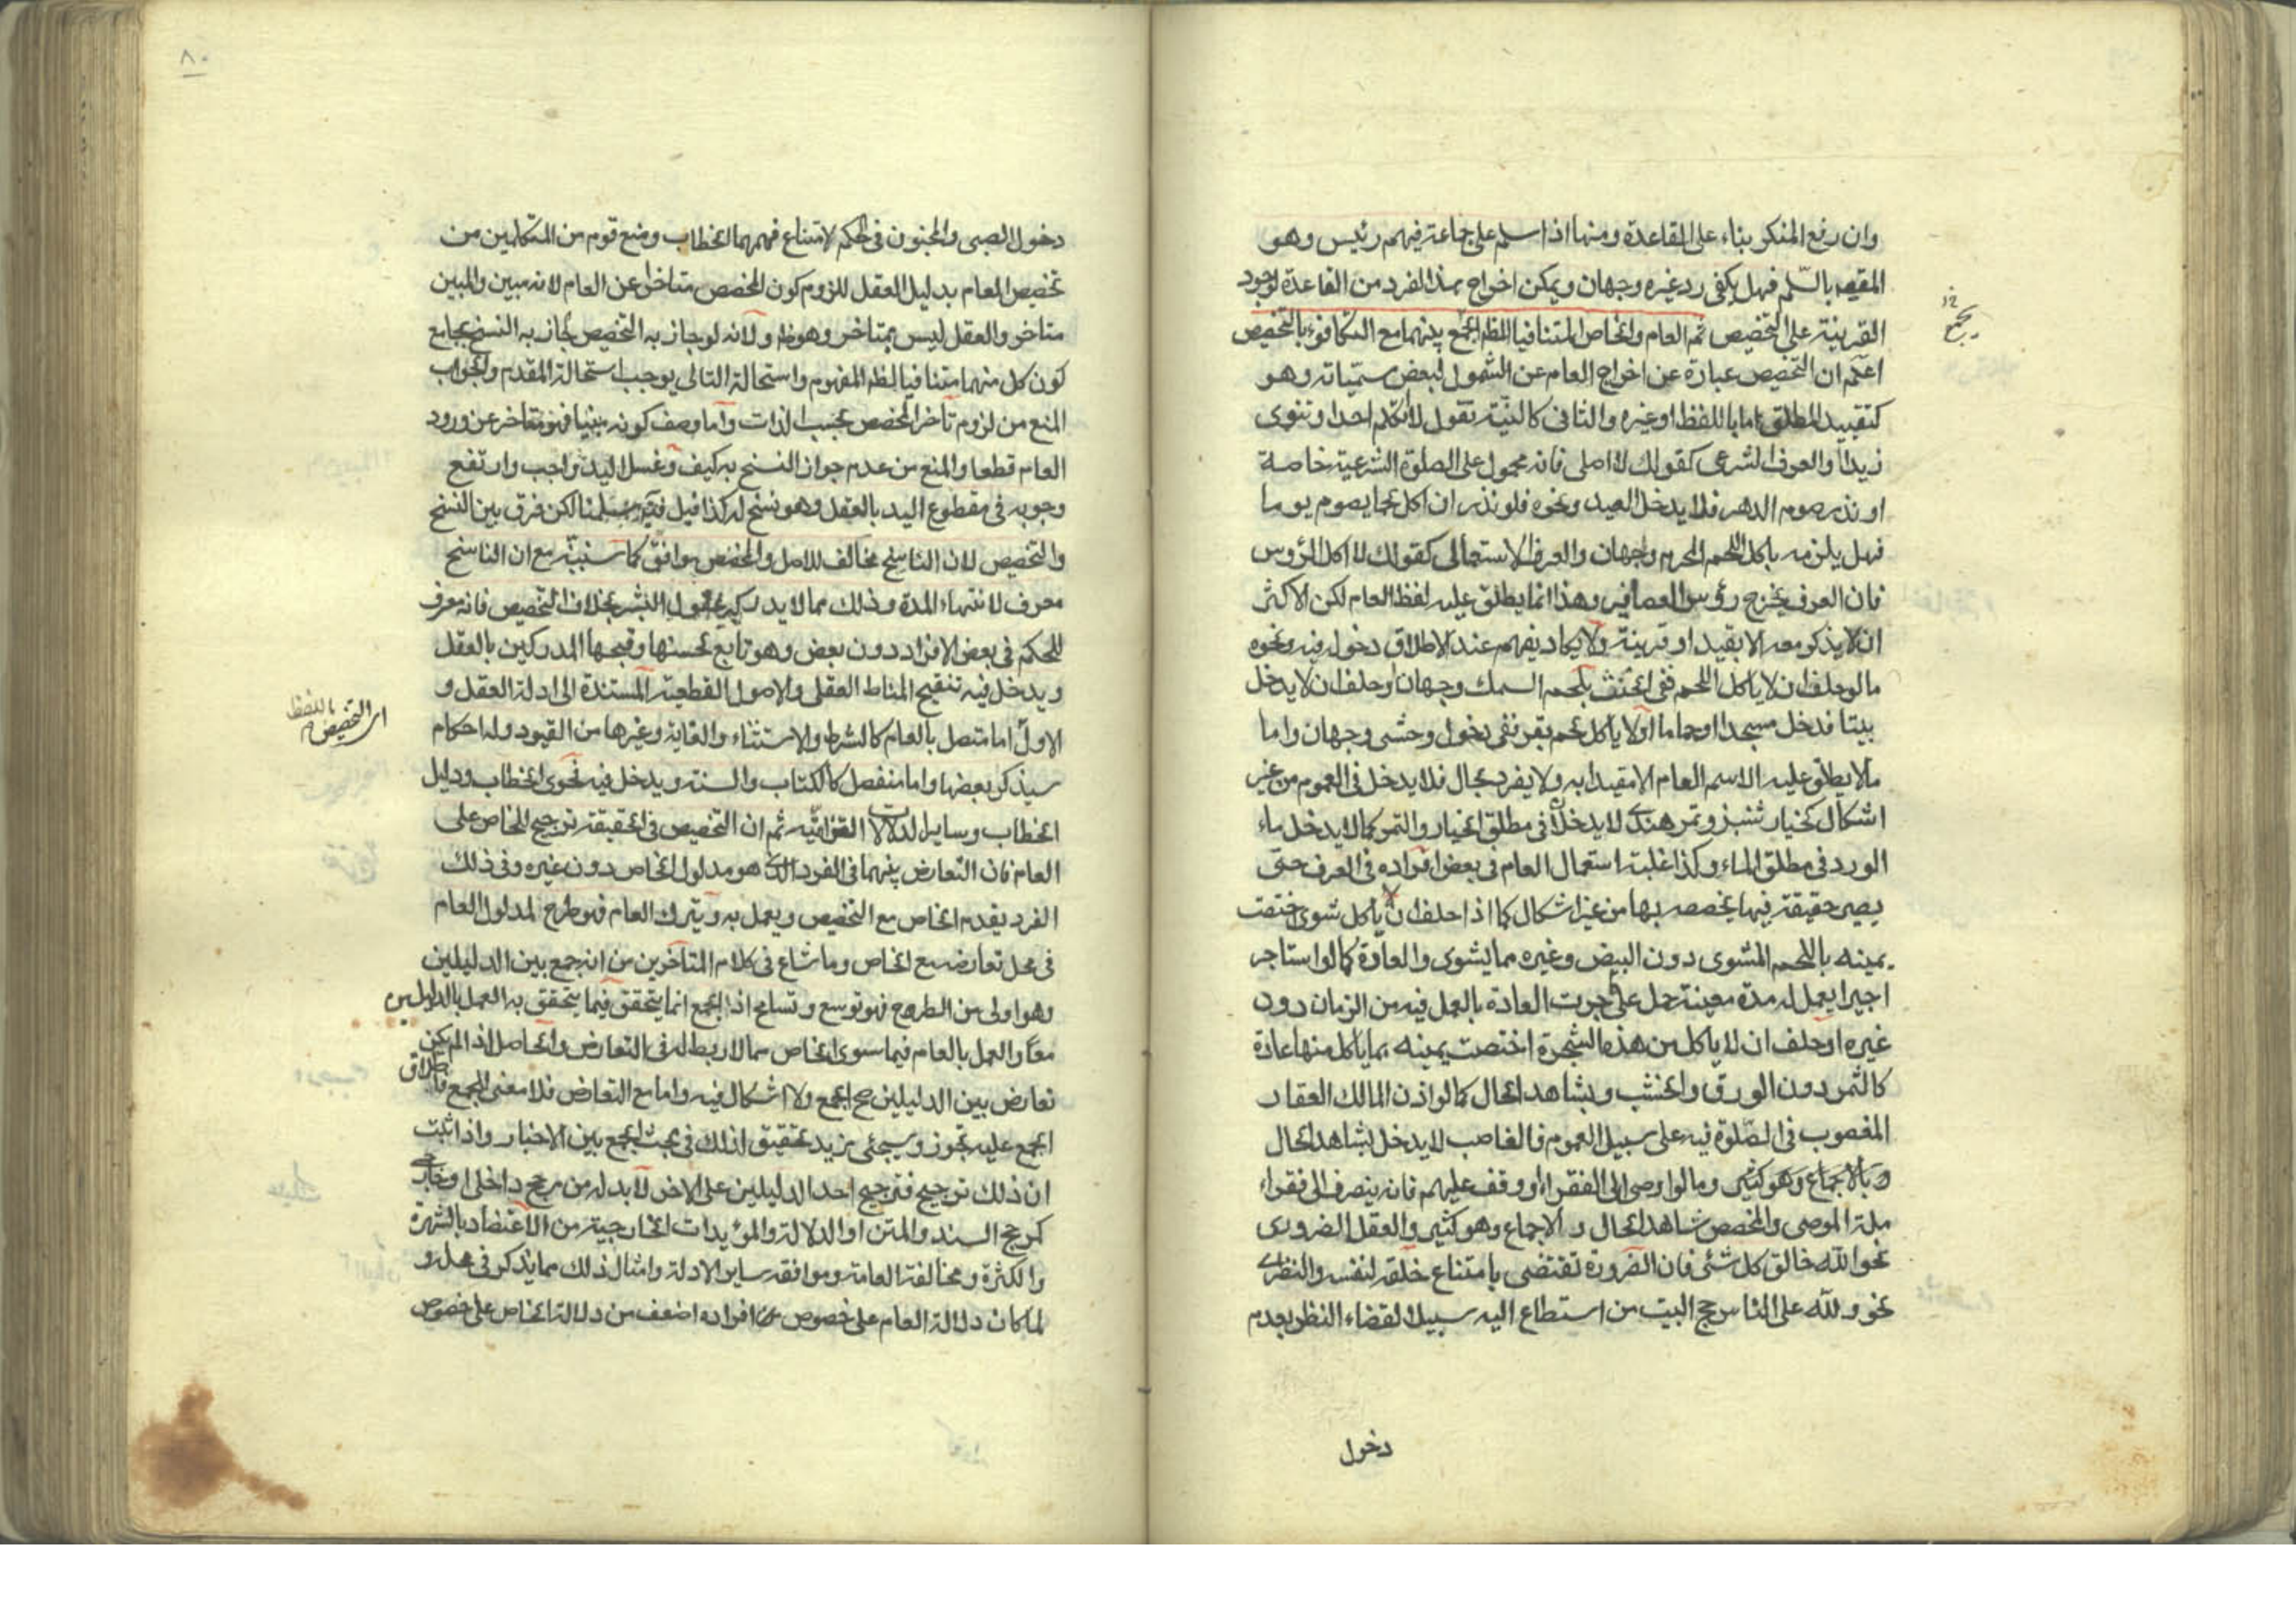 وان رفع المنكر بناء على القاعدة ومنها اذا سلم على جماعة فيهم رئيس وهو
المقصود بالسّلم فهل يكفى رد غيره وجهان ويمكن اخراج هذا الفرد من القاعدة لوجود
القرينة على التخصيص ثم العام والخاص المتنافيا الظاهر الجمع بينهما مع التكافؤ بالتخصيص
يجمع خ
اعلم ان التخصيص عبارة عن اخراج العام عن الشمول لبعض مسمّياته وهو
كتقييد المطلق اما باللفظ او غيره والثانى كالنيّة تقول لا اكلم احدا وتنوى
زيدا والعرف الشرعى كقولك لا اصلى فانه محمول على الصلوة الشرعية خاصة
او نذر صوم الدهر فلا يدخل العيد ونحوه فلو نذر ان اكل لحما يصوم يوما
فهل يلزمه باكل اللحم المحرم وجهان والعرف الاستعمالى كقولك لا اكل الرؤس
فان العرف يخرج رؤس العصافير وهذا انما يطلق عليه لفظ العام لكن الاكثر
ان لا يذكر معه الا بقيد او قرينة ولا يكاد يفهم عند الاطلاق دخول فيه ونحوه
ما لو حلف ان لا ياكل اللحم ففى الحنث بلحم السمك وجهان او حلف ان لا يدخل
بيتا فدخل مسجدا او حماما او لا ياكل لحم بقر ففى دخول وحشى وجهان واما
ما لا يطلق عليه الاسم العام الا مقيدا به ولا يفرد بحال فلا يدخل فى العموم من غير
اشكال كخيار شنبر وتمر هندى لا يدخلان فى مطلق الخيار والتمر كما لا يدخل ماء
الورد فى مطلق الماء وكذا غلبة استعمال العام فى بعض افراده فى العرف حتى
يصير حقيقة فيها يخصصه بها من غير اشكال كما اذا حلف ان لا ياكل شوى اختصت
يمينه باللحم المشوى دون البيض وغيره مما يشوى والعادة كما لو استاجر
اجيرا يعمل له مدة معينة حمل على ما جرت العادة بالعمل فيه من الزمان دون
غيره او حلف ان لا ياكل من هذه الشجرة اختصت يمينه بما ياكل منها عادة
كالثمر دون الورق والخشب وبشاهد الحال كما لو اذن المالك العقار
المغصوب فى الصّلوة فيه على سبيل العموم فالغاصب لا يدخل بشاهد الحال
وبالاجماع وهو كثير وما لو اوصى الى الفقراء او وقف عليهم فانه ينصرف الى فقراء
ملة الموصى والمخصص شاهد الحال والاجماع وهو كثير والعقل الضرورى
نحو الله خالق كل شئ فان الضرورة تقتضى بامتناع خلقه لنفسه والنظرى
نحو ولله على الناس حج البيت من استطاع اليه سبيلا لقضاء النظر بعدم
دخول
٨٠
دخول الصبى والمجنون فى الحكم لامتناع فهمهما الخطاب ومنع قوم من المتكلمين من
تخصيص العام بدليل العقل للزوم كون المخصص متاخرا عن العام لانه مبين والمبين
متاخر والعقل ليس بمتاخر وهو ظ ولانه لو جاز به التخصيص لجاز به النسخ بجامع
كون كل منهما متنافيا لظ المفهوم واستحالة التالى يوجب استحالة المقدم والجواب
المنع من لزوم تاخر المخصص بحسب الذات واما وصف كونه مبنيا فهو متاخر عن ورود
العام قطعا والمنع من عدم جواز النسخ به كيف وغسل اليد واجب وارتفع
وجوبه فى مقطوع اليد بالعقل وهو نسخ له كذا قيل سلمنا لكن فرق بين النسخ
والتخصيص لان الناسخ مخالف للاصل والمخصص موافق كما سنبيّنه مع ان الناسخ
معرف لانتهاء المدة وذلك مما لا يدركه عقول البشر بخلاف التخصيص فانه معرف
للحكم فى بعض الافراد دون بعض وهو تابع لحسنها وقبحها المدركين بالعقل
ويدخل فيه تنقيح المناط العقلى والاصول القطعية المستندة الى ادلة العقل و
الاول اما متصل بالعام كالشرط والاستثناء والغاية وغيرها من القيود وله احكام
اى التخصيص باللفظ
سيذكر بعضها واما منفصل كالكتاب والسنة ويدخل فيه فحوى الخطاب ودليل
الخطاب وساير الدلالات الالتزاميّة ثم ان التخصيص فى الحقيقة ترجيح للخاص على
العام فان التعارض بينهما فى الفرد الذى هو مدلول الخاص دون غيره وفى ذلك
الفرد يقدم الخاص مع التخصيص ويعمل به ويترك العام فهو طرح لمدلول العام
فى محل تعارضه مع الخاص وما شاع فى كلام المتاخرين من انه جمع بين الدليلين
وهو اولى من الطرح فهو توسع وتسامح اذ الجمع انما يتحقق فيما يتحقق به العمل بالدليلين
معا والعمل بالعام فيما سوى الخاص مما لا ربط له فى التعارض والحاصل اذا لم يكن
تعارض بين الدليلين صح الجمع ولا اشكال فيه واما مع التعارض فلا معنى للجمع فاطلاق
الجمع عليه تجوز وسيجئى مزيد تحقيق لذلك فى بحث الجمع بين الاخبار واذا ثبت
ان ذلك ترجيح فترجيح احد الدليلين على الاخر لا بد له من مرجح داخلى او خارجى
كمرجح السند والمتن او الدلالة والمؤيدات الخارجية من الاعتضاد بالشهرة
والكثرة ومخالفة العامة وموافقة ساير الادلة وامثال ذلك مما يذكر فى محله و
لما كان دلالة العام على خصوص افراده اضعف من دلالة الخاص على خصوص